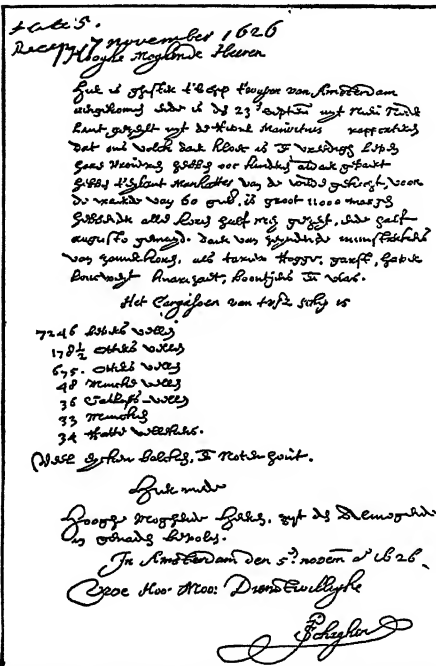 Recep. 7 November 1626
Hooghe Moghende Heeren
Hier is ghister t'Schip t'Wapen van Amsterdam
aengekomen ende is den 23en septem. uyt Nieu Neder
lant gezeylt uyt de Rivier Mauritius. rapporteren
dat ons volck daer kloec is en vreedigh leven
haer Vrouwen hebben ooc kinderen aldaer gebaert
hebben t'eylant Manhattes van de wilde gekocht, voor
de waerde van 60 guld. is groot 11000 morgen
hebbende alle koren half mey gezeyt, ende half
augusto gemayd. Daer van zeyndende munsterkens
van zomerkoren, als tarwe, Rogge, garst, haver
boucweyt, knarizaet, boontjens en vlas.
Het Cargasoen van tvsz schip is
7246 bevers vellen
178½ otters vellen
675. otters vellen
48 mincke vellen
36 Catlosse vellen
33 mincken
34 Ratte vellekens.
Veel eycken balcken, en Noten hout.
Hier mede
Hooghe Moghende Heeren, zyt den Almogende
in genade bevolen.
In Amsterdam den 5en novem. ao 1626.
Uwe Hoo: Moo: Dienstwillighe
P Schaghen